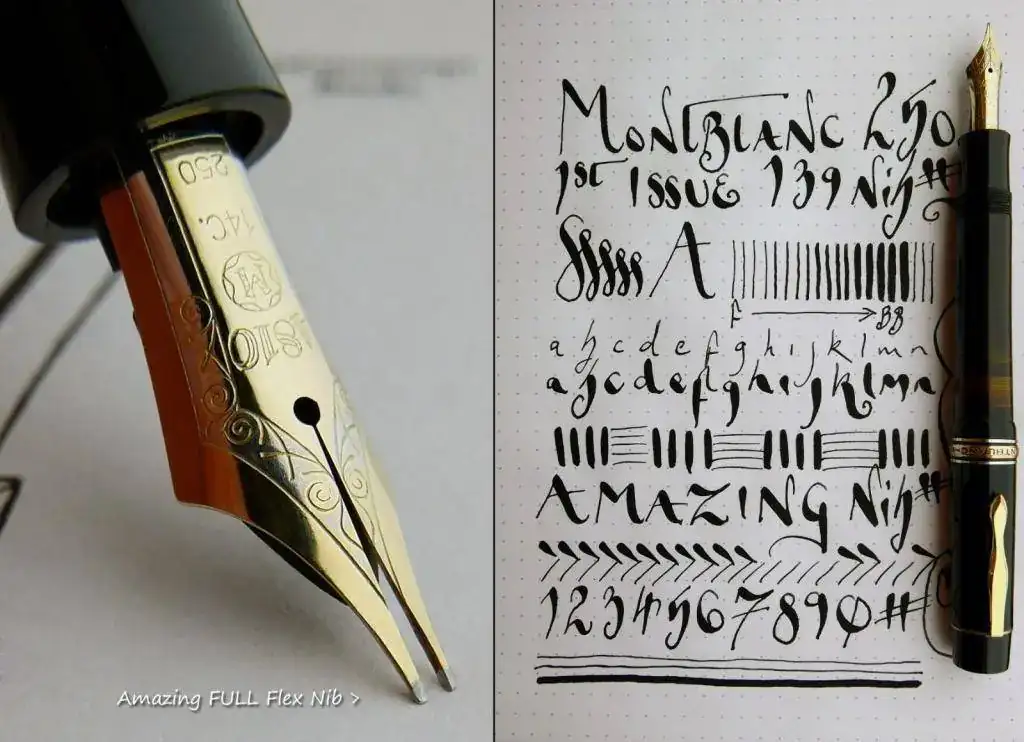 250
14C.
M
4810
Amazing FULL Flex Nib >
MontBlanc 250
1st ISSUE 139 Nib##
A
F BB
a b c d e f g h i j k l m n
a b c d e f g h i j k l m n
AMAZING Nib##
1 2 3 4 5 6 7 8 9 0 #